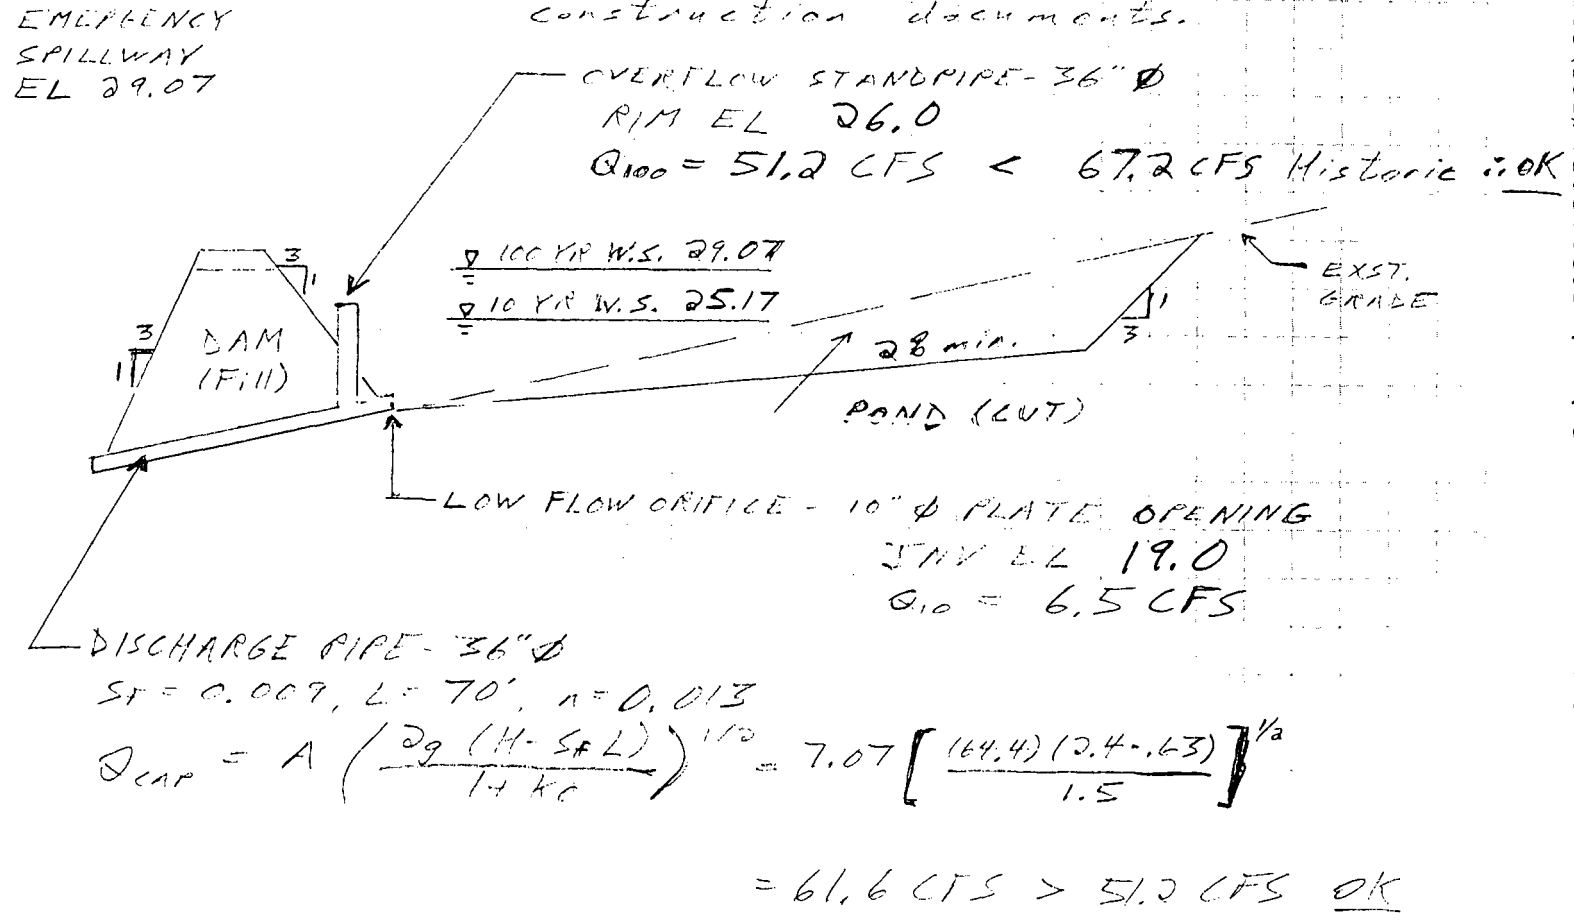 EMERGENCY
SPILLWAY
EL 29.07
construction documents.
OVERFLOW STANDPIPE - 36" Ø
RIM EL 26.0
Q100 = 51.2 CFS < 67.2 CFS Historic ∴ OK
100 YR W.S. 29.07
10 YR W.S. 25.17
3
1
3
1
DAM
(Fill)
2% min.
1
3
EXST.
GRADE
POND (CUT)
LOW FLOW ORIFICE - 10" Ø PLATE OPENING
INV EL 19.0
Q10 = 6.5 CFS
DISCHARGE PIPE - 36" Ø
SF = 0.009, L = 70', n = 0.013
QCAP = A (2g (H - SF L) / 1 + Ke)^1/2 = 7.07 [(64.4)(2.4 - .63) / 1.5]^1/2
= 61.6 CFS > 51.2 CFS OK